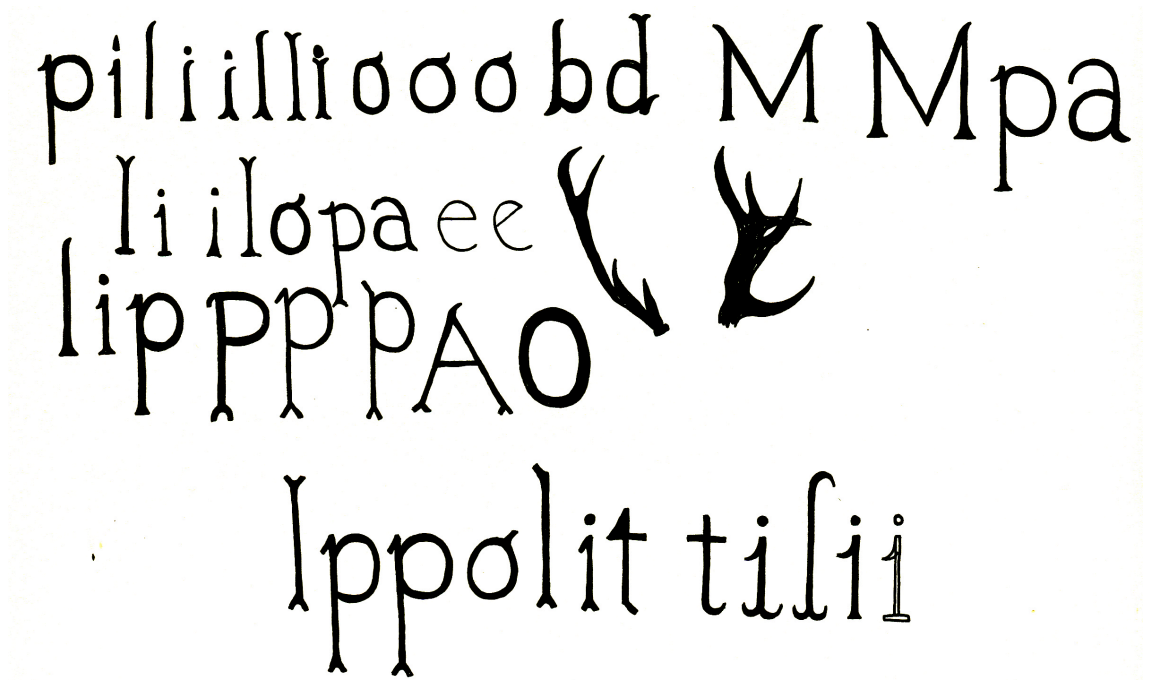 piliillliooobd M Mpa
li ilopaee
lipPPPAO
Ippolit tilii